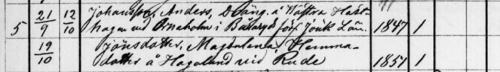 5 21/9 12/10 Johansson, Anders, Dräng å Västra Hult-
hagen vid i Båraryd förs. Jönk. Län. 1847 1
19/10 Jönsdotter, Magdalena, Hemma-
dotter å Hagalund vid Rude 1851 1